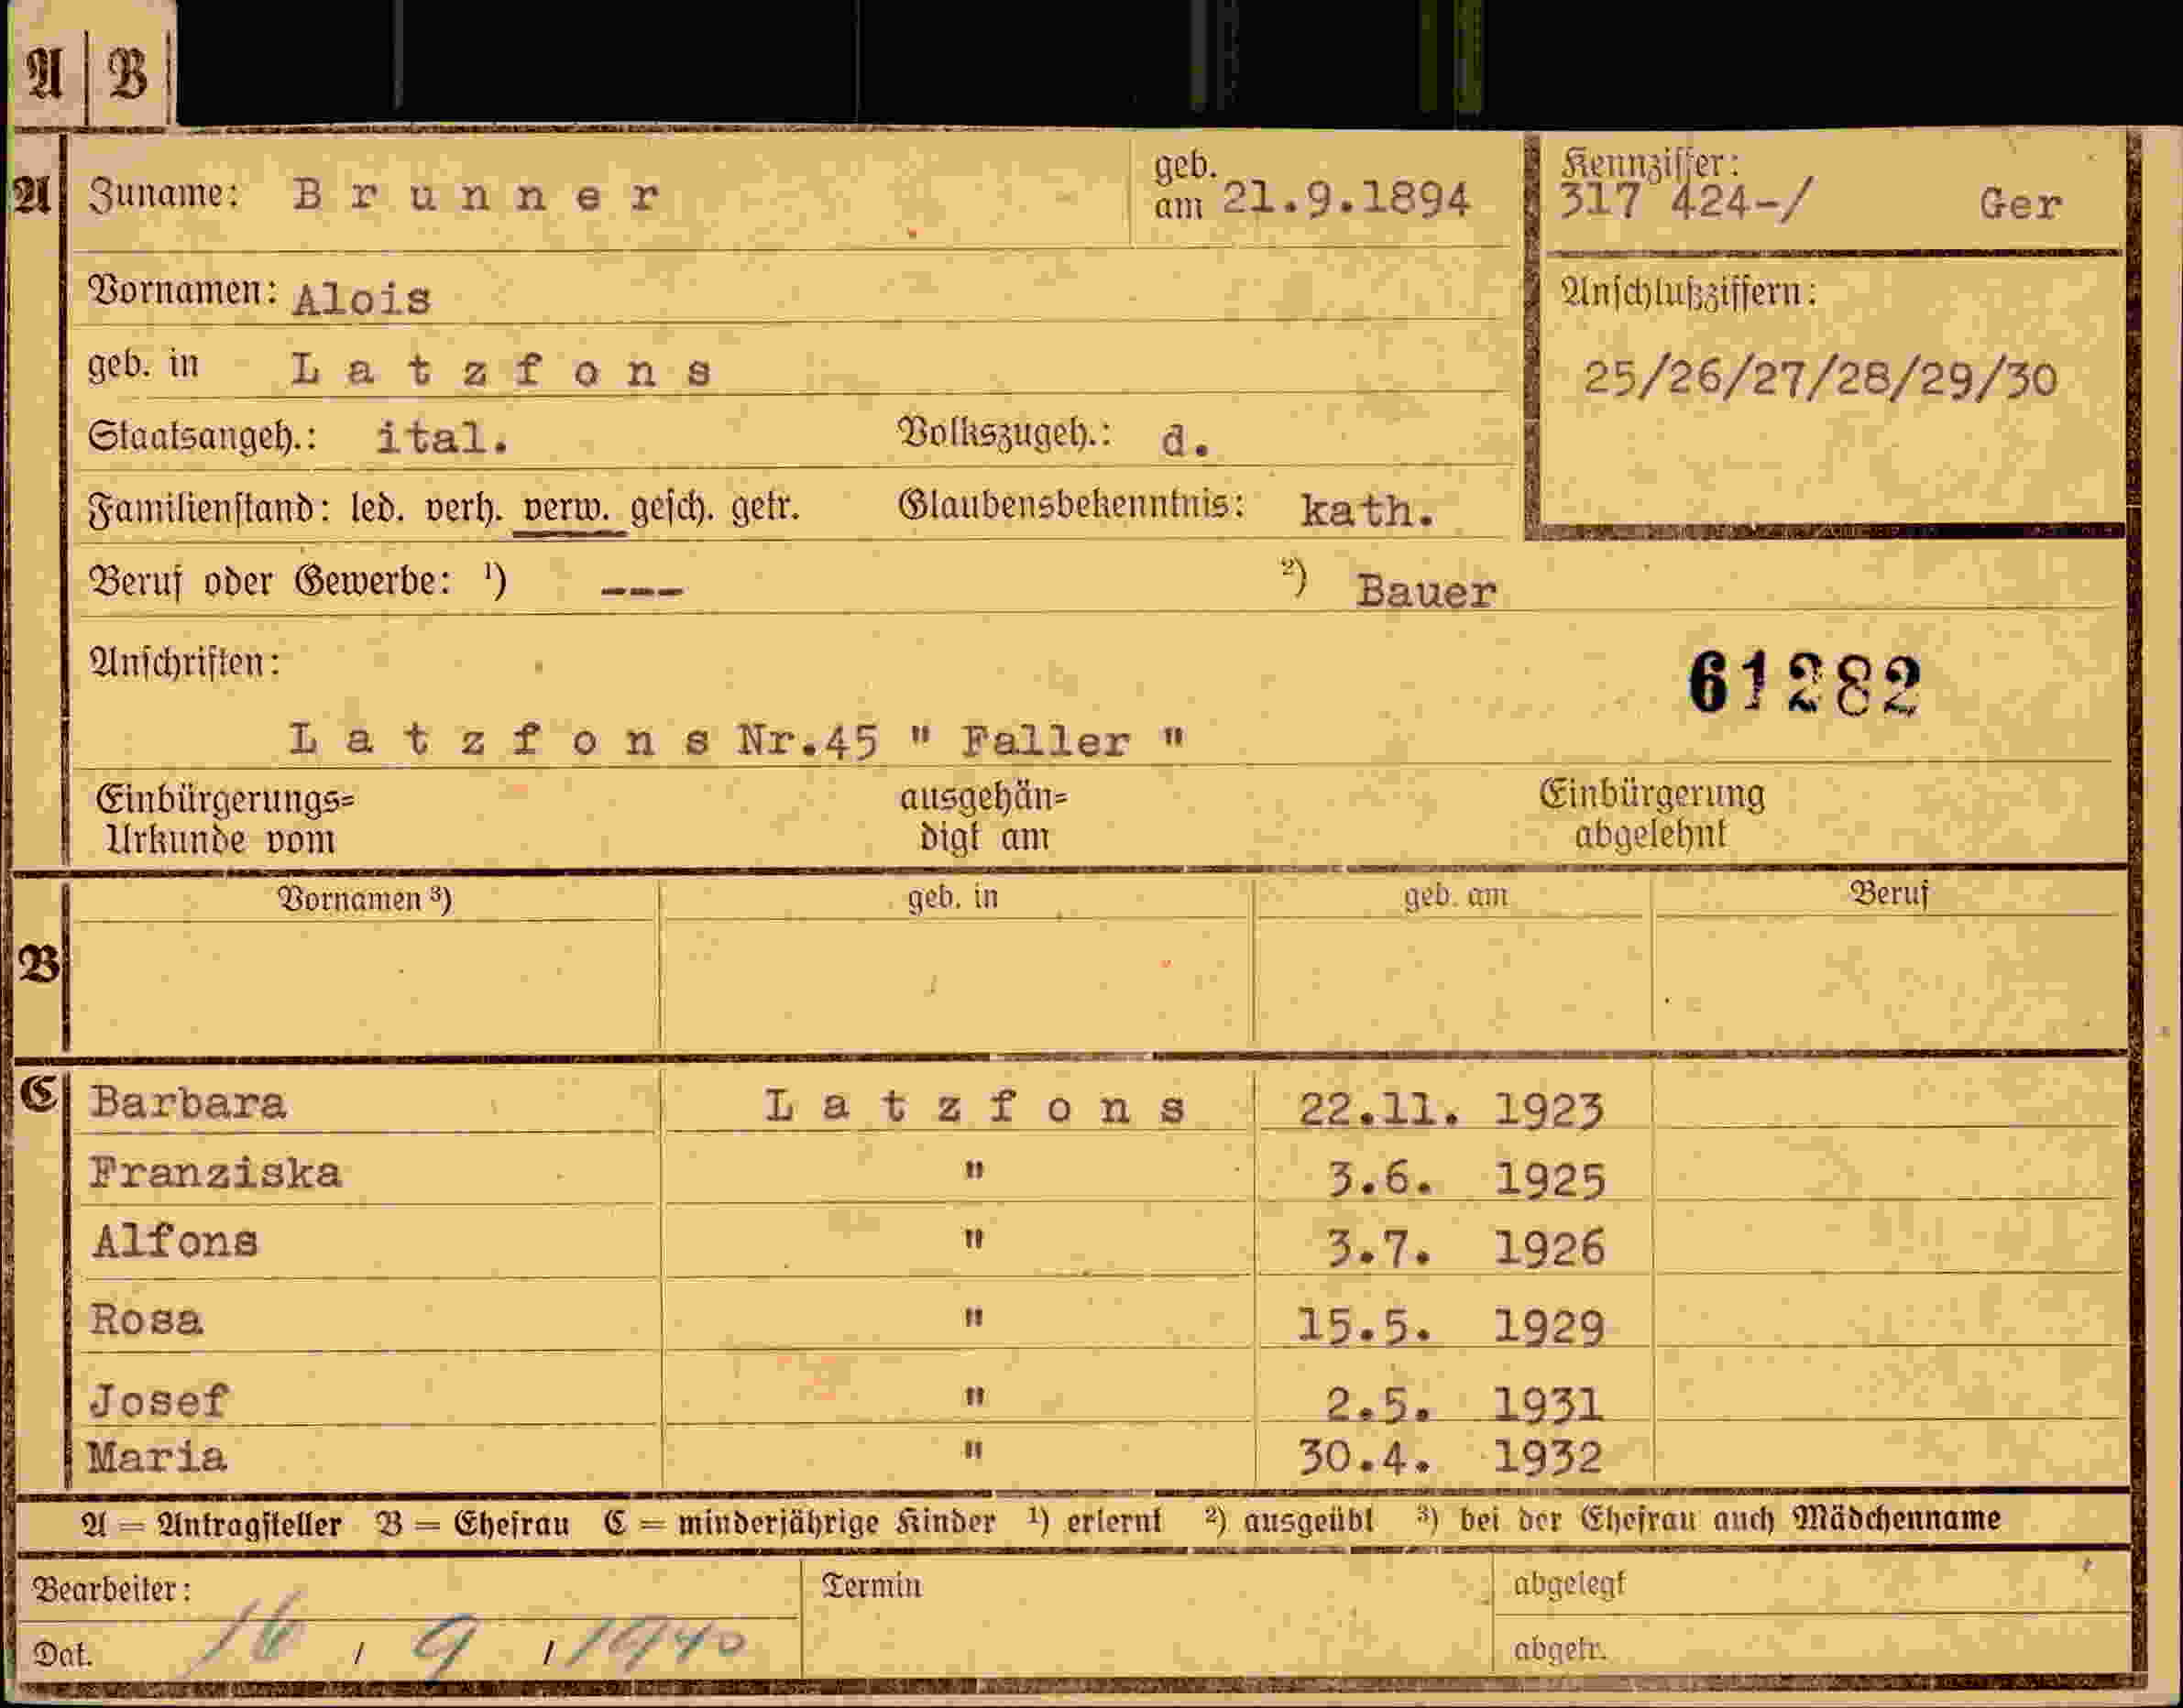 A | B
A Zuname: Brunner geb. am 21.9.1894 Kennziffer: 317 424-/ Ger
Vornamen: Alois Anschlußziffern:
geb. in Latzfons 25/26/27/28/29/30
Staatsangeh.: ital. Volkszugeh.: d.
Familienstand: led. verh. verw. gesch. getr. Glaubensbekenntnis: kath.
Beruf oder Gewerbe: ¹) --- ²) Bauer
Anschriften: 61282
Latzfons Nr.45 " Faller "
Einbürgerungs= ausgehän= Einbürgerung
Urkunde vom digt am abgelehnt
Vornamen ³) geb. in geb. am Beruf
B
C Barbara Latzfons 22.11. 1923
Franziska " 3.6. 1925
Alfons " 3.7. 1926
Rosa " 15.5. 1929
Josef " 2.5. 1931
Maria " 30.4. 1932
A = Antragsteller B = Ehefrau C = minderjährige Kinder ¹) erlernt ²) ausgeübt ³) bei der Ehefrau auch Mädchenname
Bearbeiter: Termin abgelegt
Dat. 16 / 9 / 1940 abgetr.